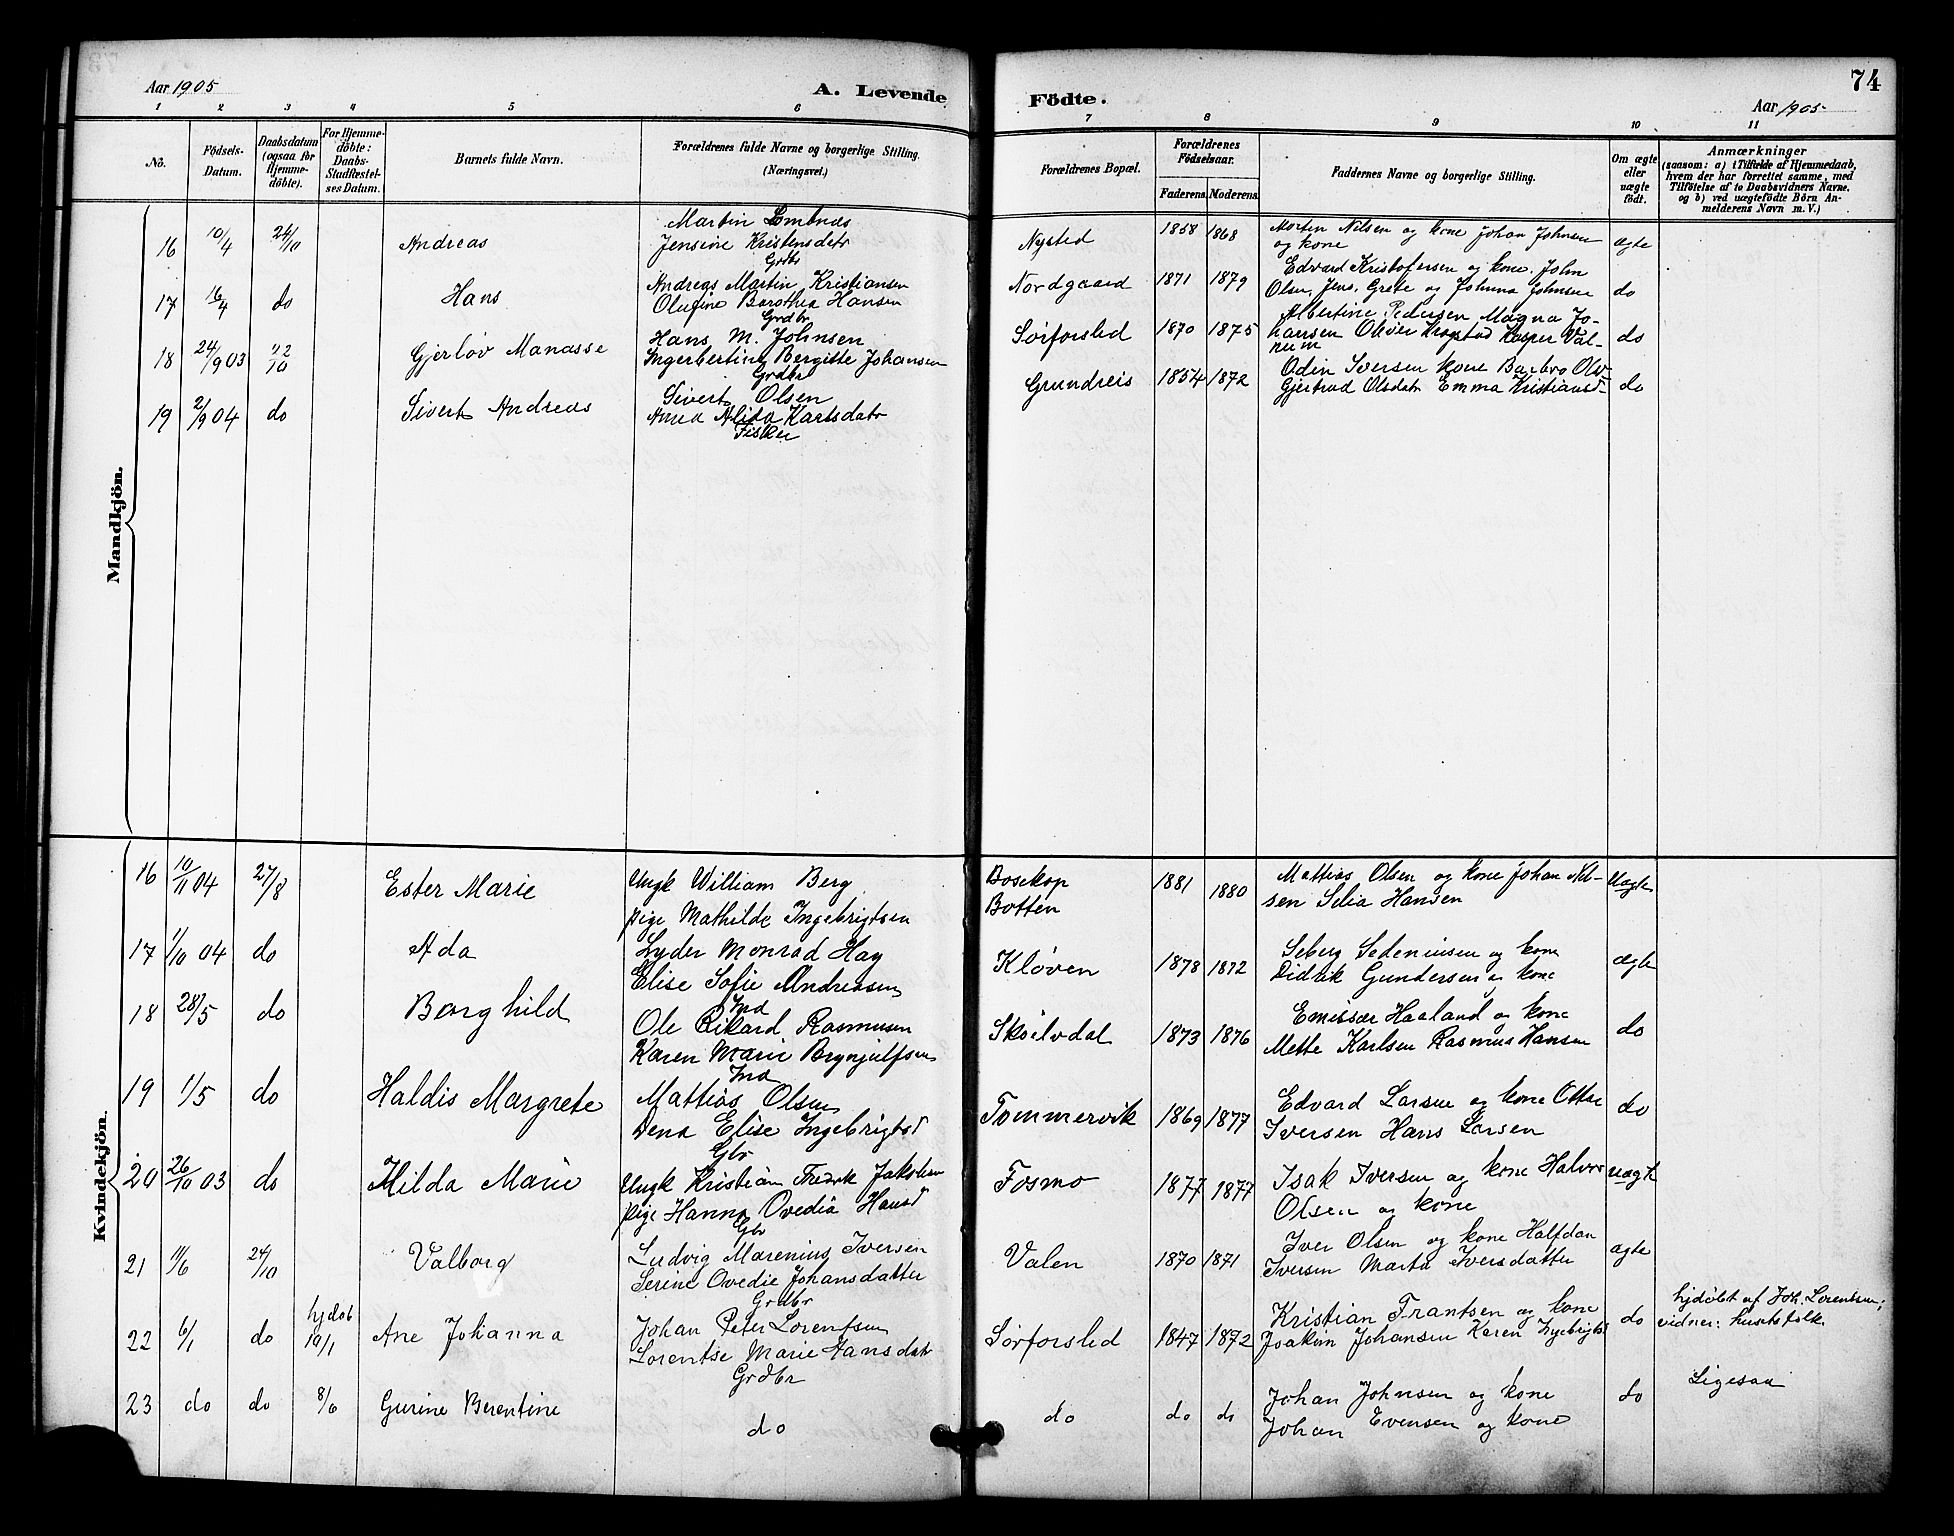 74
Aar 1905
A. Levende
Födte.
Aar 1905
1 2 3 4 5 6
7 8 9 10 11
No.
Födsels-
Datum.
Daabsdatum
(ogsaa for
Hjemme-
döbte).
For Hjemme-
döbte:
Daabs-
Stadfæstel-
ses Datum.
Barnets fulde Navn.
Forældrenes fulde Navne og borgerlige Stilling.
(Næringsvei.)
Forældrenes Bopæl.
Forældrenes
Födselsaar.
Faderens. Moderens.
Faddernes Navne og borgerlige Stilling.
Om ægte
eller
uægte
födt.
Anmærkninger
(saasom: a) i Tilfælde af Hjemmedaab,
hvem der har forrettet samme, med
Tilföielse af to Daabsvidners Navne.
og b) ved uægtefödte Börn An-
melderens Navn m. V.)
Mandkjön.
16 10/4 24/10 Andreas
Martin Lombnæs
Jensine Kristensdatr
Grdbr
Nysted 1858 1868
Morten Nilsen og kone Johan Johnsen
og kone
ægte
17 16/4 do Hans
Andreas Martin Kristiansen
Olufine Dorothea Hansen
Grdbr
Nordgaard 1871 1879
Edvard Kristofersen og kone. John
Olsen, Jens, Grete og Johnna Johnsen
do
18 24/9 03 22/10 Gjerlov Manasse
Hans M. Johnsen
Ingerbertine Bergitte Johansen
Grdbr
Sørforsled 1870 1875
Albertine Pedersen Magna Jo-
hansen Oliver Krogstad Kasper Val-
num
do
19 2/9 04 do Sivert Andreas
Sivert Olsen
Anna Alida Karlsdatr
Fisker
Grundreis 1854 1872
Odin Iversen kone Barbro Ols-
Gjertrud Olsdatr Emma Kristiansd-
do
Kvindekjön.
16 10/11 04 27/8 Ester Marie
Ungk William Berg
Pige Mathilde Ingebrigtsen
Bosekop
Botten
1881 1880
Mattias Olsen og kone Johan Nil-
sen Selia Hansen
Uægte
17 1/10 04 do Ada
Lyder Monrad Hay
Elise Sofie Andreasen
Ind
Kløven 1878 1872
Seberg Sedeniusen og kone
Didrik Gundersen og kone
ægte
18 28/5 do Borghild
Ole Rikard Rasmusen
Karen Marie Brynjulfsen
Ind
Skøelvdal 1873 1876
Emissær Haaland og kone
Mette Karlsen Rasmus Hansen
do
19 1/5 do Haldis Margrete
Mattias Olsen
Dena Elise Ingebrigtsd
Gbr
Tømmervik 1869 1877
Edvard Larsen og kone Ottar
Iversen Hans Larsen
do
20 26/10 03 do Hilda Marie
Ungk Kristian Fredrik Jakobsen
Pige Hanna Ovedia Hansd
Gbr
Fosmo 1877 1877
Isak Iversen og kone Halvor
Olsen og kone
uægte
21 11/6 24/10 Valborg
Ludvig Marenius Iversen
Serine Ovedie Johansdatter
Grdbr
Valen 1870 1871
Iver Olsen og kone Halfdan
Iversen Marta Iversdatter
ægte
22 6/1 do hjdøb 10/1 Ane Johanna
Johan Peter Lorentsen
Lorentse Marie Hansdatr
Grdbr
Sørforsled 1847 1872
Kristian Frantsen og kone
Joakim Johansen Karen Ingebrigts
do
hjdøbt af Joh. Lorentsen;
vidner: husetsfolk.
23 do do 8/6 Gurine Berentine
do
do do do
Johan Johnsen og kone
Johan Evensen og kone
do
Ligesaa